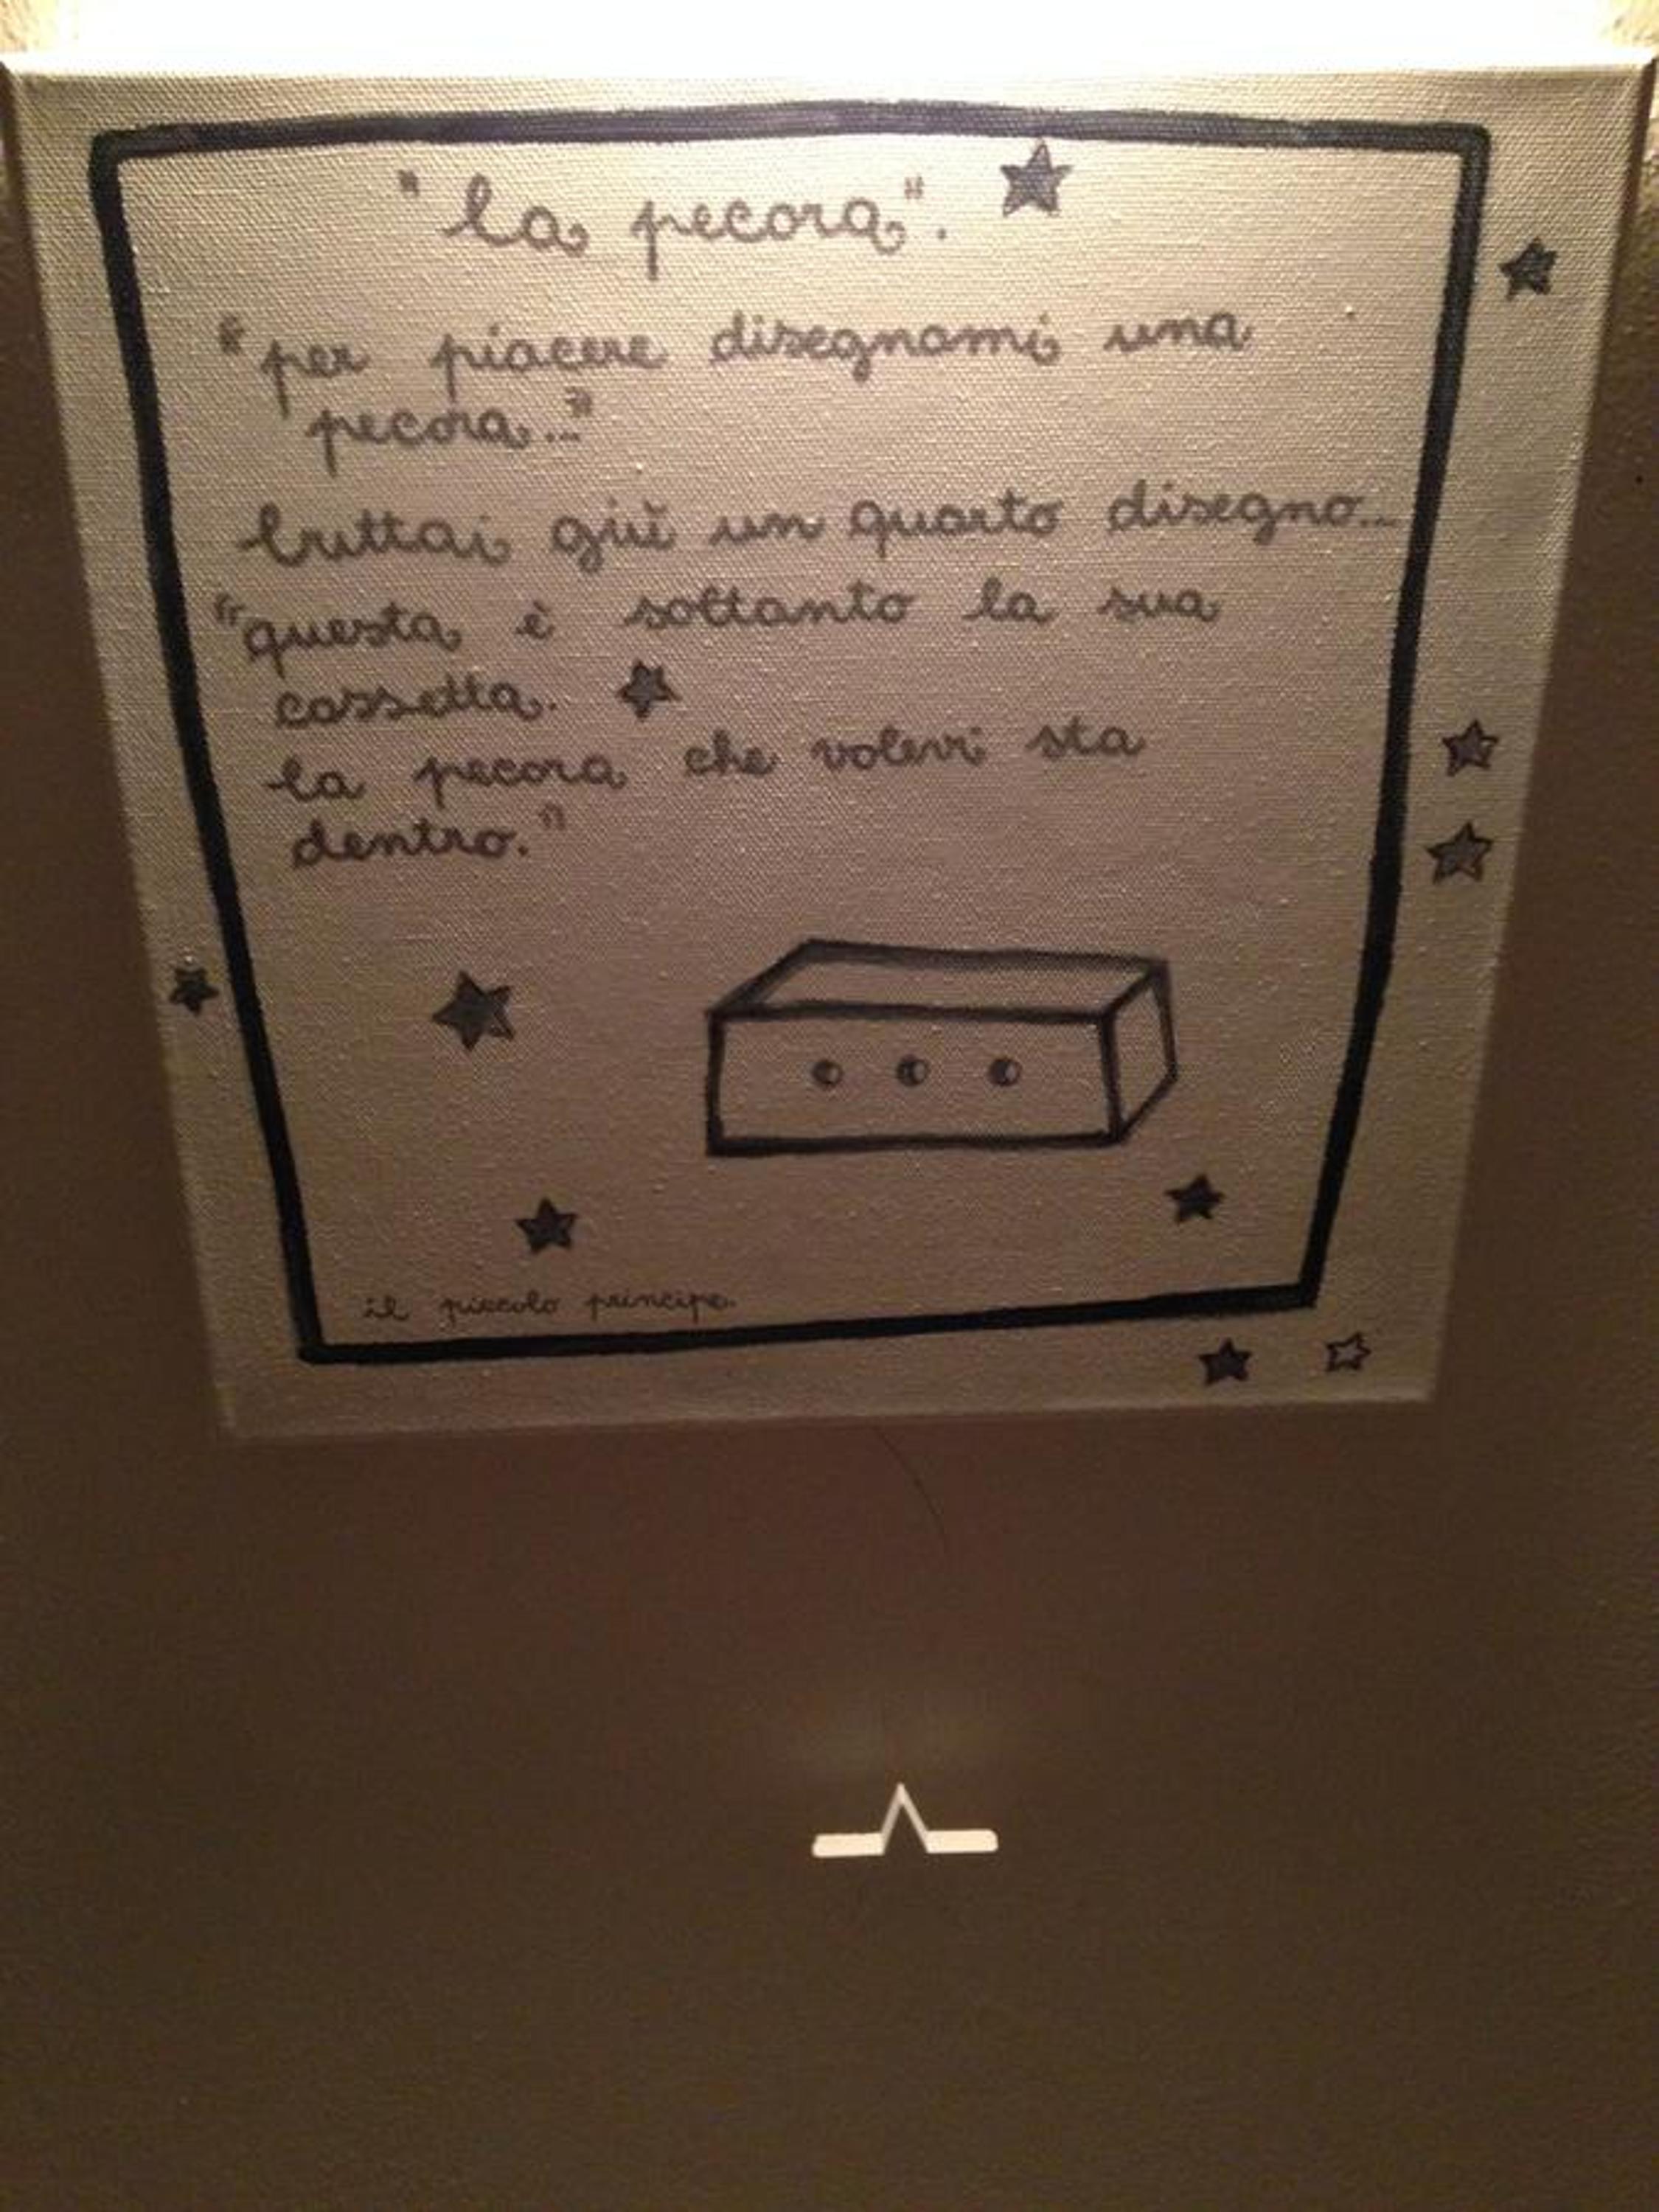 "la pecora".
"per piacere disegnami una
pecora..."
buttai giù un quarto disegno...
"questa è soltanto la sua
cassetta.
la pecora che volevi sta
dentro."
il piccolo principe.